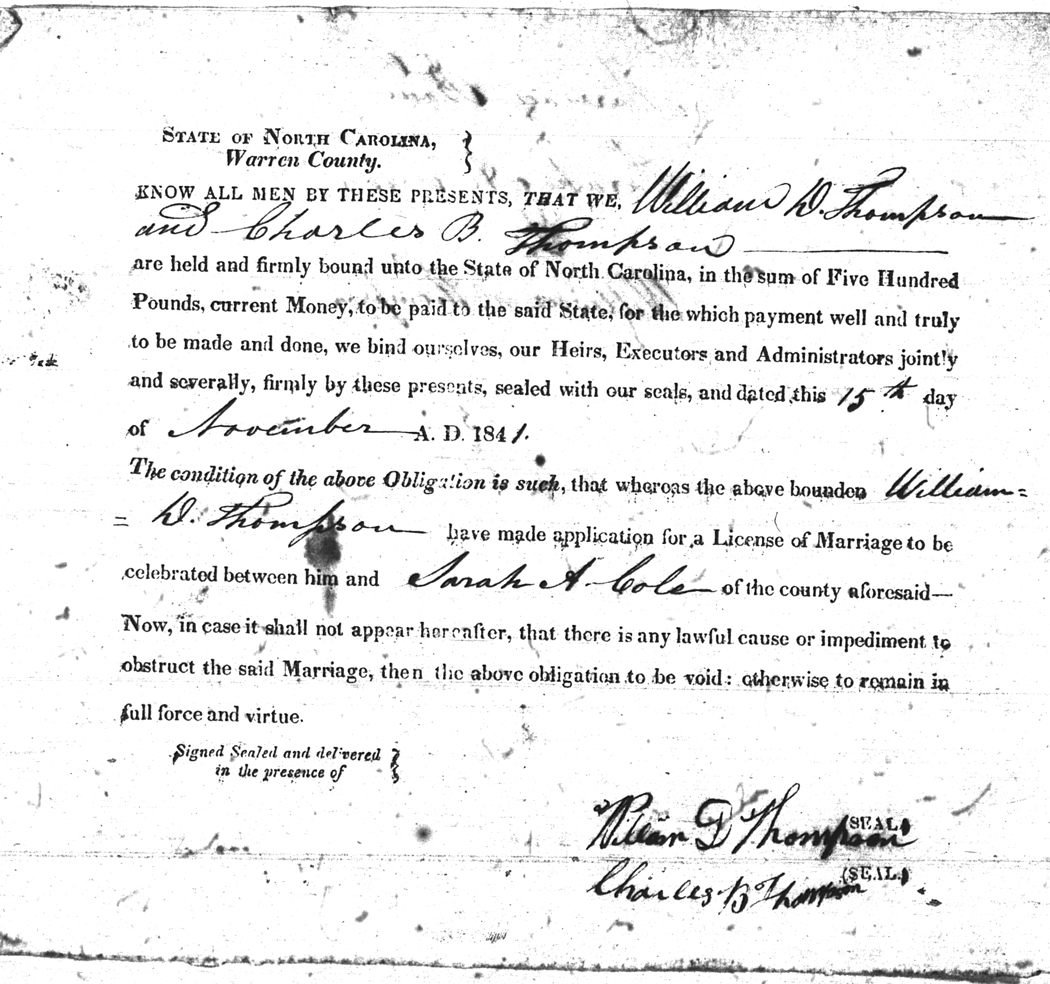 STATE OF NORTH CAROLINA,
Warren County.
KNOW ALL MEN BY THESE PRESENTS, THAT WE, William D. Thompson
and Charles B. Thompson
are held and firmly bound unto the State of North Carolina, in the sum of Five Hundred
Pounds, current Money, to be paid to the said State, for the which payment well and truly
to be made and done, we bind ourselves, our Heirs, Executors and Administrators jointly
and severally, firmly by these presents, sealed with our seals, and dated this 15th day
of November A. D. 1841.
The condition of the above Obligation is such, that whereas the above bounden William=
= D. Thompson have made application for a License of Marriage to be
celebrated between him and Sarah A Cole of the county aforesaid—
Now, in case it shall not appear hereafter, that there is any lawful cause or impediment to
obstruct the said Marriage, then the above obligation to be void: otherwise to remain in
full force and virtue.
Signed Sealed and delivered
in the presence of
William D Thompson (SEAL)
Charles B Thompson (SEAL)